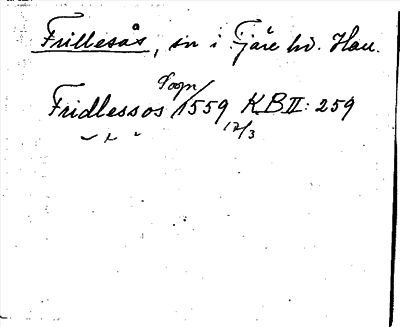 Frillesås, sn i Fjäre hd. Hall.
Sogn
Fridlessos 1559 KB II: 259
12/3